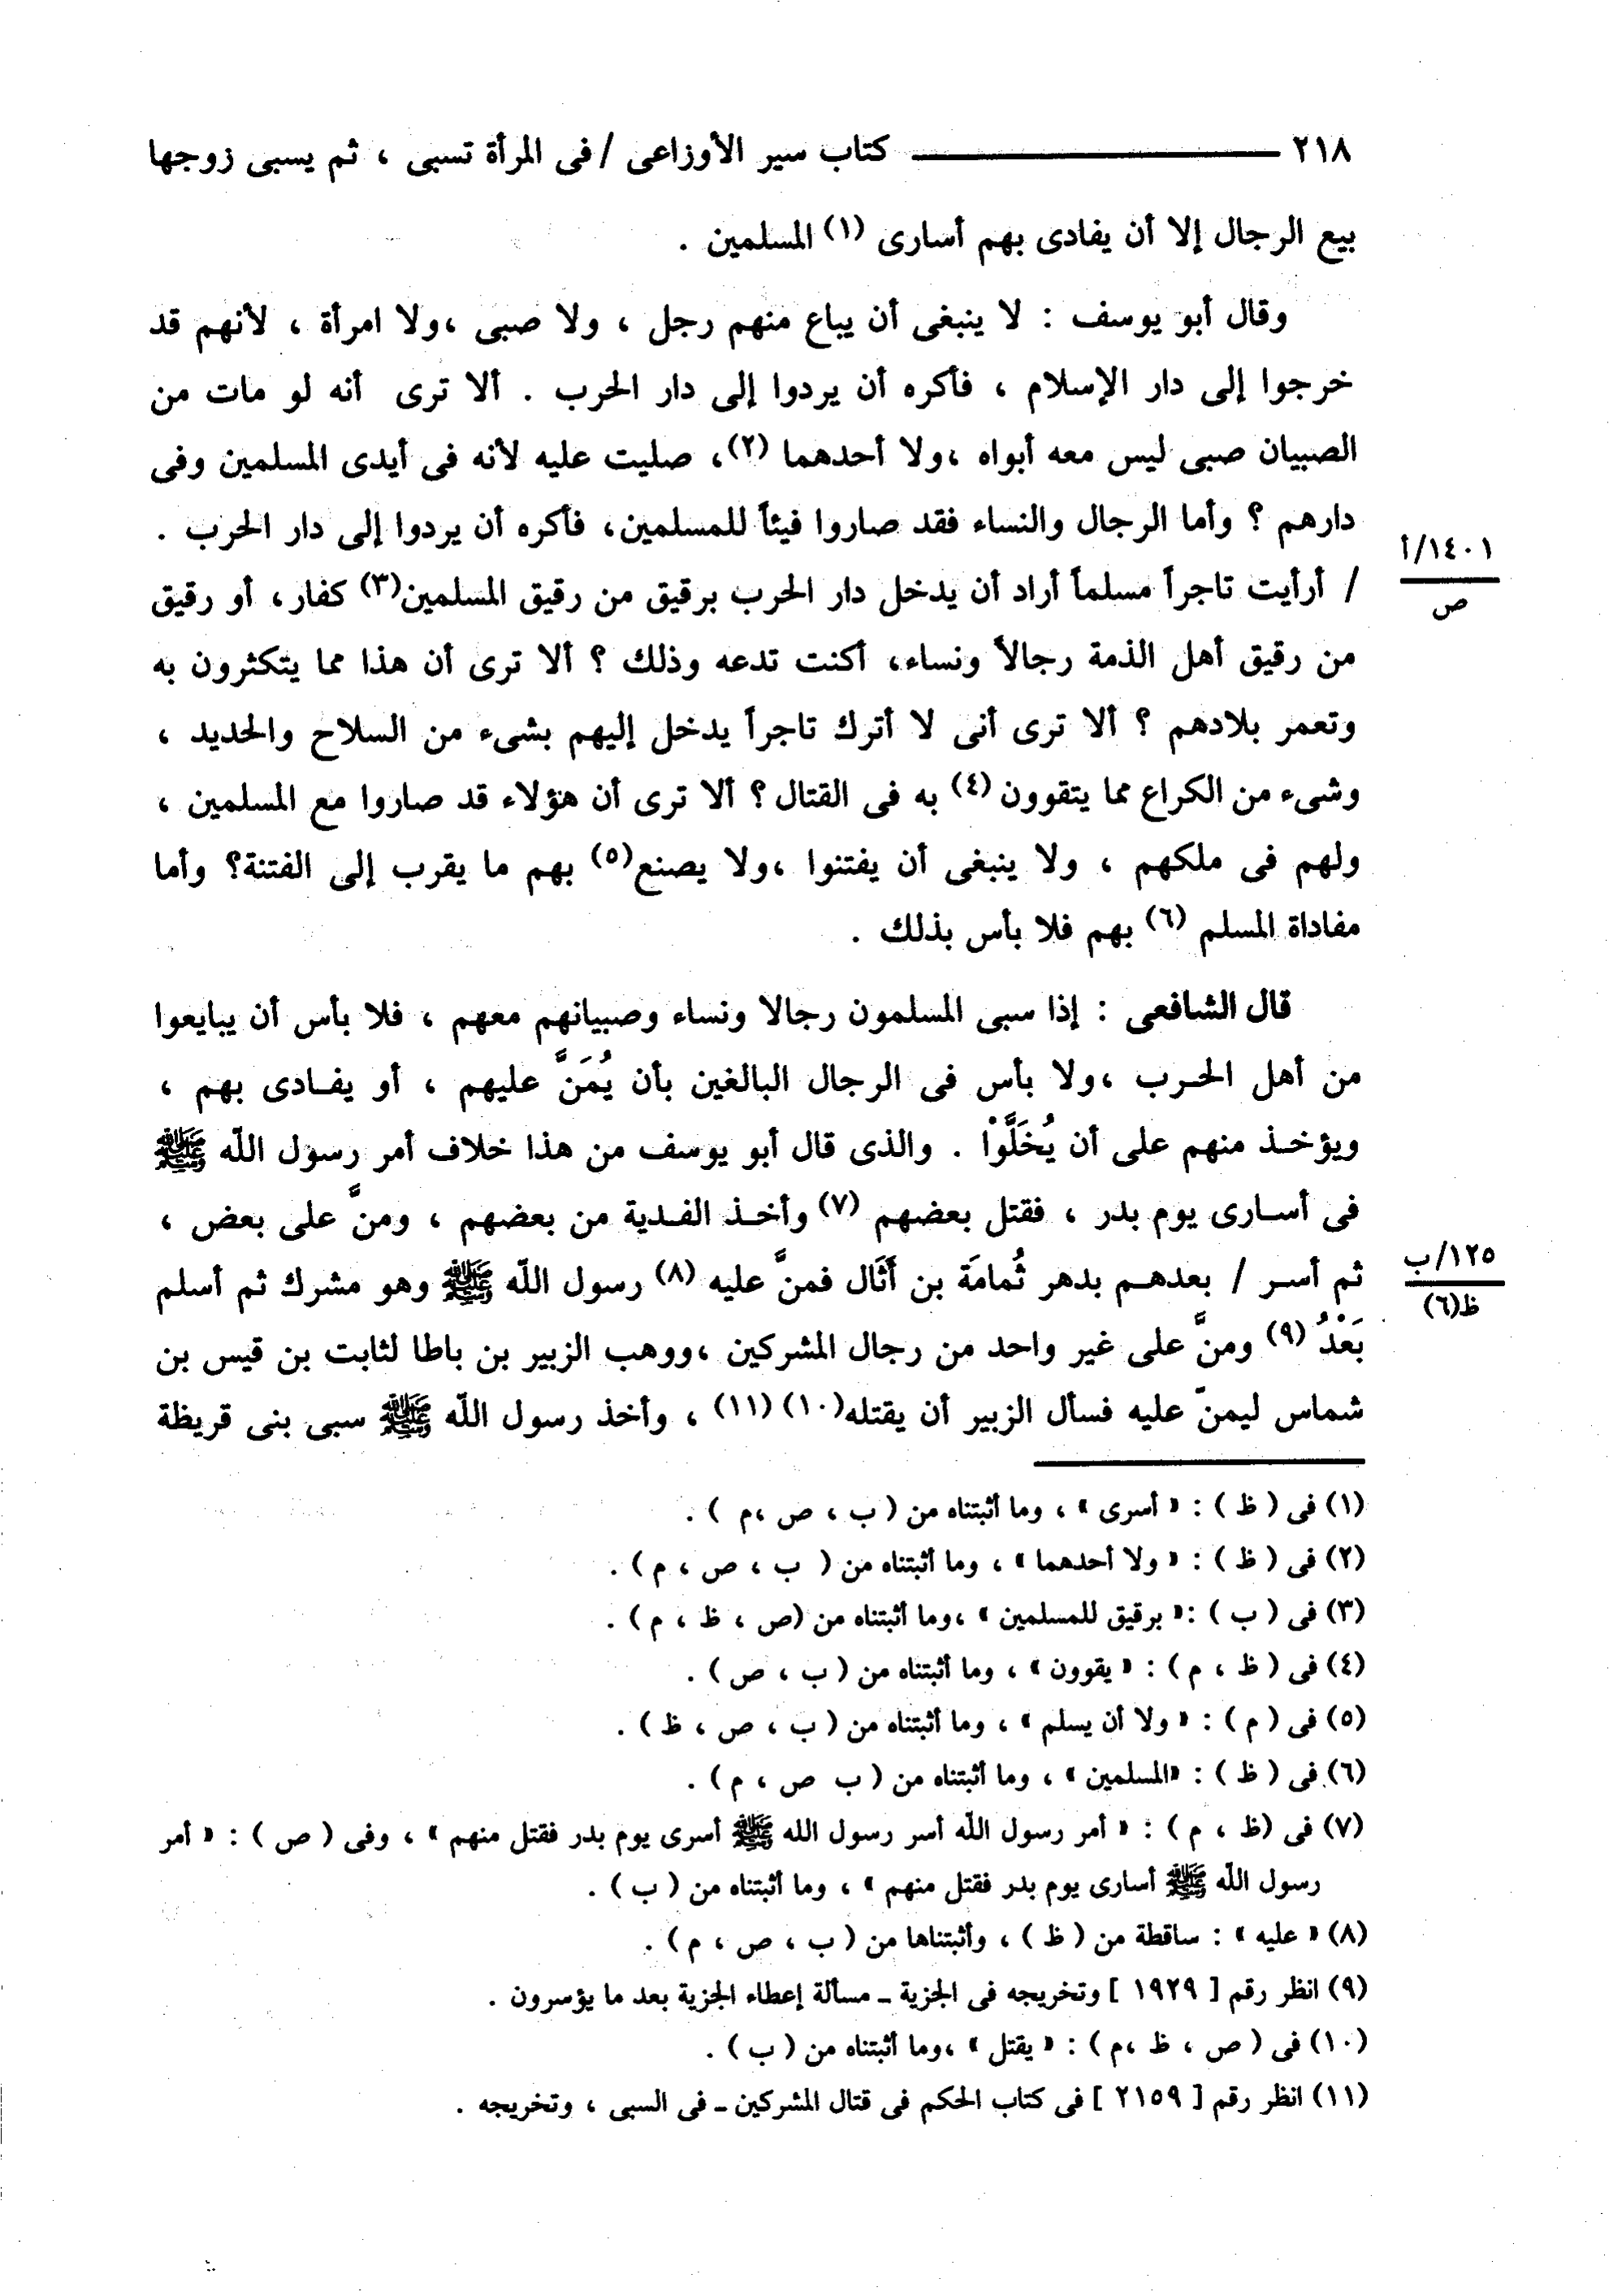 ٢١٨ ـــــــــــــــــ كتاب سير الأوزاعى / فى المرأة تسبى ، ثم يسبى زوجها
بيع الرجال إلا أن يفادى بهم أسارى (١) المسلمين .
وقال أبو يوسف : لا ينبغى أن يباع منهم رجل ، ولا صبى ،ولا امرأة ، لأنهم قد
خرجوا إلى دار الإسلام ، فأكره أن يردوا إلى دار الحرب . ألا ترى أنه لو مات من
الصبيان صبى ليس معه أبواه ،ولا أحدهما (٢)، صليت عليه لأنه فى أيدى المسلمين وفى
دارهم ؟ وأما الرجال والنساء فقد صاروا فيئاً للمسلمين، فأكره أن يردوا إلى دار الحرب .
١٤٠١/أ
ص
/ أرأيت تاجراً مسلماً أراد أن يدخل دار الحرب برقيق من رقيق المسلمين(٣) كفار، أو رقيق
من رقيق أهل الذمة رجالاً ونساء، أكنت تدعه وذلك ؟ ألا ترى أن هذا مما يتكثرون به
وتعمر بلادهم ؟ ألا ترى أنى لا أترك تاجراً يدخل إليهم بشىء من السلاح والحديد ،
وشىء من الكراع مما يتقوون (٤) به فى القتال ؟ ألا ترى أن هؤلاء قد صاروا مع المسلمين ،
ولهم فى ملكهم ، ولا ينبغى أن يفتنوا ،ولا يصنع(٥) بهم ما يقرب إلى الفتنة؟ وأما
مفاداة المسلم (٦) بهم فلا بأس بذلك .
قال الشافعى : إذا سبى المسلمون رجالا ونساء وصبيانهم معهم ، فلا بأس أن يبايعوا
من أهل الحرب ،ولا بأس فى الرجال البالغين بأن يُمَنَّ عليهم ، أو يفادى بهم ،
ويؤخذ منهم على أن يُخَلَّوْا . والذى قال أبو يوسف من هذا خلاف أمر رسول الله ﷺ
فى أسارى يوم بدر ، فقتل بعضهم (٧) وأخذ الفدية من بعضهم ، ومنَّ على بعض ،
ثم أسر / بعدهم بدهر ثُمامَة بن أَثَال فمنَّ عليه (٨) رسول الله ﷺ وهو مشرك ثم أسلم
١٢٥/ب
ظ(٦)
بَعْدُ (٩) ومنَّ على غير واحد من رجال المشركين ،ووهب الزبير بن باطا لثابت بن قيس بن
شماس ليمنّ عليه فسأل الزبير أن يقتله(١٠) (١١) ، وأخذ رسول الله ﷺ سبى بنى قريظة
(١) فى ( ظ ) : « أسرى » ، وما أثبتناه من ( ب ، ص ،م ) .
(٢) فى ( ظ ) : « ولا أحدهما » ، وما أثبتناه من ( ب ، ص ، م ) .
(٣) فى ( ب ) :« برقيق للمسلمين » ،وما أثبتناه من (ص ، ظ ، م ) .
(٤) فى ( ظ ، م ) : « يقوون » ، وما أثبتناه من ( ب ، ص ) .
(٥) فى ( م ) : « ولا أن يسلم » ، وما أثبتناه من ( ب ، ص ، ظ ) .
(٦) فى ( ظ ) : «المسلمين » ، وما أثبتناه من ( ب ص ، م ) .
(٧) فى (ظ ، م ) : « أمر رسول الله أسر رسول الله ﷺ أسرى يوم بدر فقتل منهم » ، وفى ( ص ) : « أمر
رسول الله ﷺ أسارى يوم بدر فقتل منهم » ، وما أثبتناه من ( ب ) .
(٨) « عليه » : ساقطة من ( ظ ) ، وأثبتناها من ( ب ، ص ، م ) .
(٩) انظر رقم [ ١٩٢٩ ] وتخريجه فى الجزية ـ مسألة إعطاء الجزية بعد ما يؤسرون .
(١٠) فى ( ص ، ظ ،م ) : « يقتل » ،وما أثبتناه من ( ب ) .
(١١) انظر رقم [ ٢١٥٩ ] فى كتاب الحكم فى قتال المشركين ـ فى السبى ، وتخريجه .